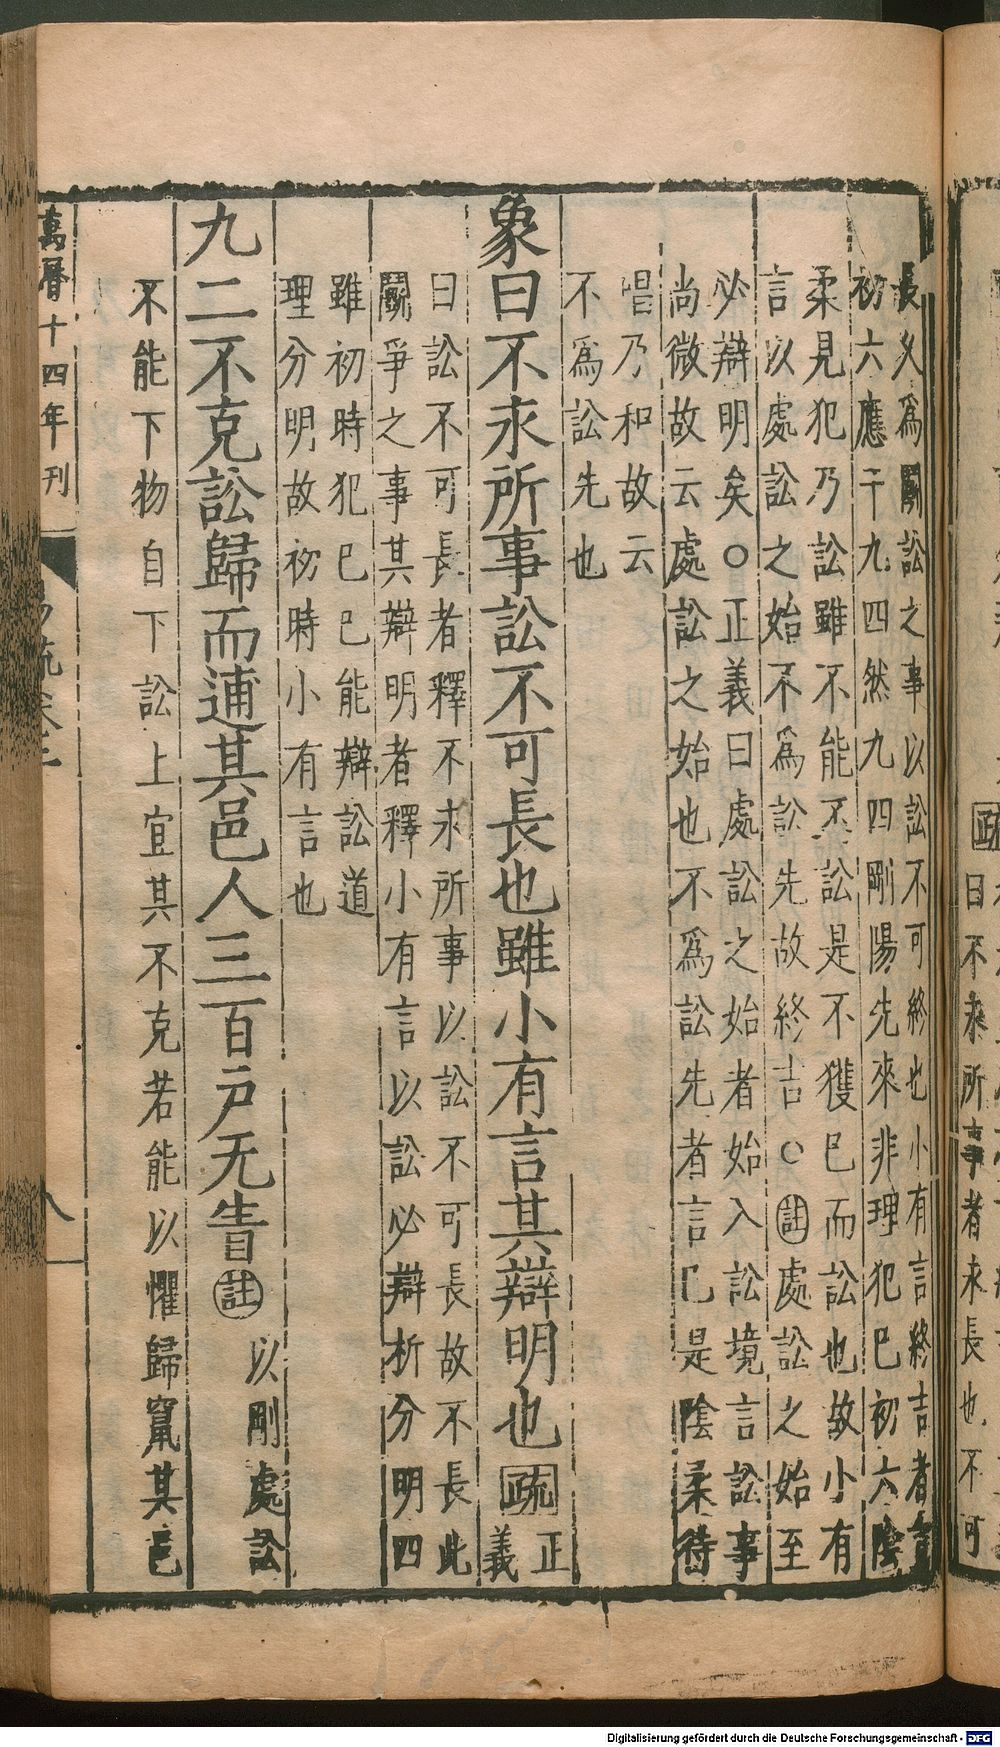 長久爲鬭訟之事以訟不可終也小有言終吉者言
初六應于九四然九四剛陽先來非理犯已初六陰
柔見犯乃訟雖不能不訟是不獲已而訟也故小有
言以處訟之始不爲訟先故終吉○註處訟之始至
必辯明矣○正義曰處訟之始者始入訟境言訟事
尚微故云處訟之始也不爲訟先者言已是陰柔待
唱乃和故云
不爲訟先也
象曰不永所事訟不可長也雖小有言其辯明也疏正
義
曰訟不可長者釋不永所事以訟不可長故不長此
鬭爭之事其辯明者釋小有言以訟必辯析分明四
雖初時犯已已能辯訟道
理分明故初時小有言也
九二不克訟歸而逋其邑人三百户无眚註以剛處訟
不能下物自下訟上宜其不克若能以懼歸竄其邑
萬曆十四年刊
易疏卷二
八
疏
曰不永所事者永長也不可
Digitalisierung gefördert durch die Deutsche Forschungsgemeinschaft - DFG